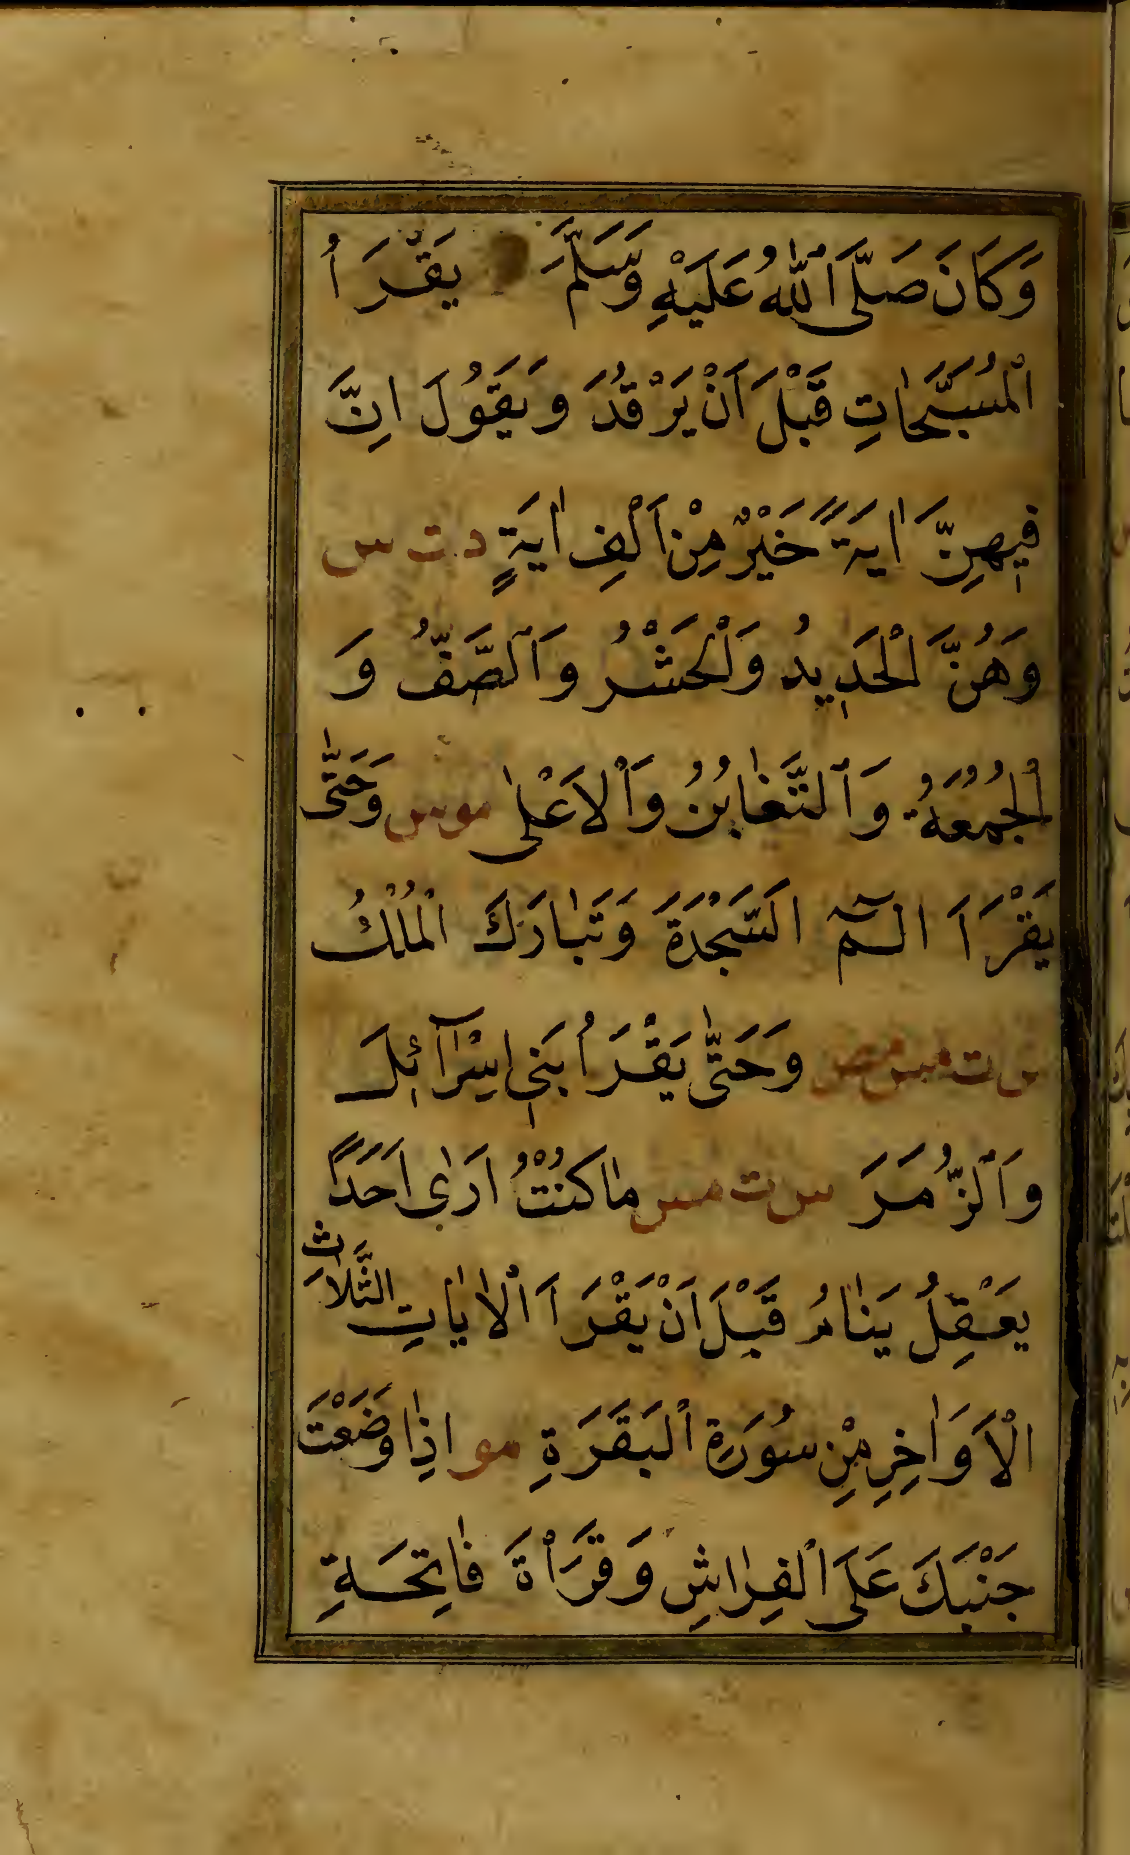 وَكَانَ صَلَّى اللّٰهُ عَلَيْهِ وَسَلَّمَ يَقْرَأُ
الْمُسَبِّحَاتِ قَبْلَ اَنْ يَرْقُدَ وَيَقُولَ اِنَّ
فِيهِنَّ اٰيَةً خَيْرٌ مِنْ اَلْفِ اٰيَةٍ د ت س
وَهُنَّ الْحَدِيدُ وَلْحَشْرُ وَالصَّفُّ وَ
الْجُمُعَةُ وَالتَّغَابُنُ وَالْاَعْلٰى موس وَحَتّٰى
يَقْرَاَ الٓمٓ السَّجْدَةَ وَتَبَارَكَ الْمُلْكُ
س ت مس مص وَحَتّٰى يَقْرَاُ بَنِى اِسْرَآئِلَ
وَالزُّمَرَ س ت مس مَا كُنْتُ اَرٰى اَحَدًا
يَعْقِلُ يَنَامُ قَبْلَ اَنْ يَقْرَاَ الْاٰيَاتِ الثَّلَاثِ
الْاَوَاخِرِ مِنْ سُورَةِ الْبَقَرَةِ مو اِذَا وَضَعْتَ
جَنْبَكَ عَلَى الْفِرَاشِ وَقَرَاْةَ فَاتِحَةِ